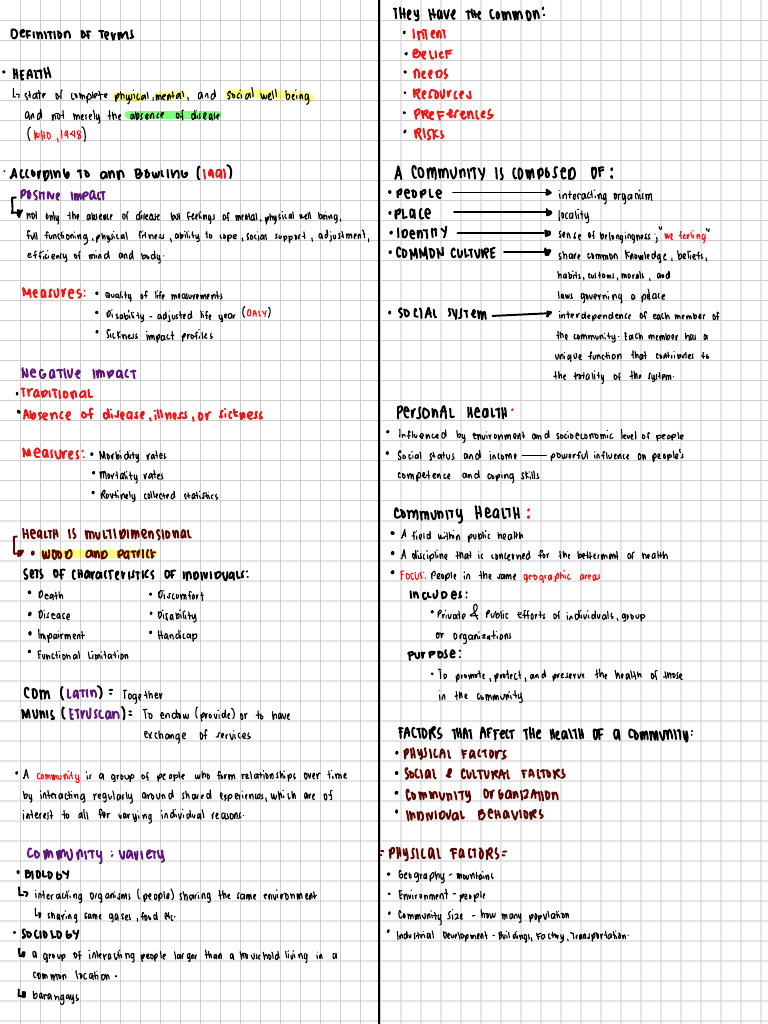 Definition of Terms
• HEALTH
↳ state of complete physical, mental, and social well being
and not merely the absence of disease
(WHO, 1948)
• ACCORDING TO ann BOWLING (1991)
POSITIVE IMPACT
not only the absence of disease but feelings of mental, physical well being,
full functioning, physical fitness, ability to cope, social support, adjustment,
efficiency of mind and body.
Measures: • Quality of life measurements
• Disability - adjusted life year (DALY)
• Sickness impact profiles
NEGATIVE IMPACT
• TRADITIONAL
• Absence of disease, illness, or sickness
Measures: • Morbidity rates
• Mortality rates
• Routinely collected statistics
HEALTH IS MULTIDIMENSIONAL
• WOOD AND PATRICK
SETS OF CHARACTERISTICS OF INDIVIDUALS:
• Death • Discomfort
• Disease • Disability
• Impairment • Handicap
• Functional Limitation
COM (LATIN) = Together
MUNIS (ETRUSCAN) = To endow (provide) or to have
exchange of services
• A community is a group of people who form relationships over time
by interacting regularly around shared experiences, which are of
interest to all for varying individual reasons.
COMMUNITY : VARIETY
• BIOLOGY
↳ interacting organisms (people) sharing the same environment
↳ sharing same gases, food etc.
• SOCIOLOGY
↳ a group of interacting people larger than a household living in a
common location.
↳ barangays
THEY HAVE THE COMMON:
• Intent
• BELIEF
• Needs
• Resources
• PREFERENCES
• RISKS
A COMMUNITY IS COMPOSED OF:
• PEOPLE → interacting organism
• PLACE → locality
• IDENTITY → sense of belongingness; "we feeling"
• COMMON CULTURE → share common knowledge, beliefs,
habits, customs, morals, and
laws governing a place
• SOCIAL SYSTEM → interdependence of each member of
the community. Each member has a
unique function that contributes to
the totality of the system.
PERSONAL HEALTH:
• Influenced by environment and socioeconomic level of people
• Social status and income — powerful influence on people's
competence and coping skills
COMMUNITY HEALTH:
• A field within public health
• A discipline that is concerned for the betterment of health
• FOCUS: People in the same geographic areas
INCLUDES:
• Private & Public efforts of individuals, group
or organizations
PURPOSE:
• To promote, protect, and preserve the health of those
in the community
FACTORS THAT AFFECT THE HEALTH OF A COMMUNITY:
• PHYSICAL FACTORS
• SOCIAL & CULTURAL FACTORS
• COMMUNITY ORGANIZATION
• INDIVIDUAL BEHAVIORS
= PHYSICAL FACTORS=
• Geography - mountains
• Environment - people
• Community Size - how many population
• Industrial Development - Buildings, Factory, Transportation.